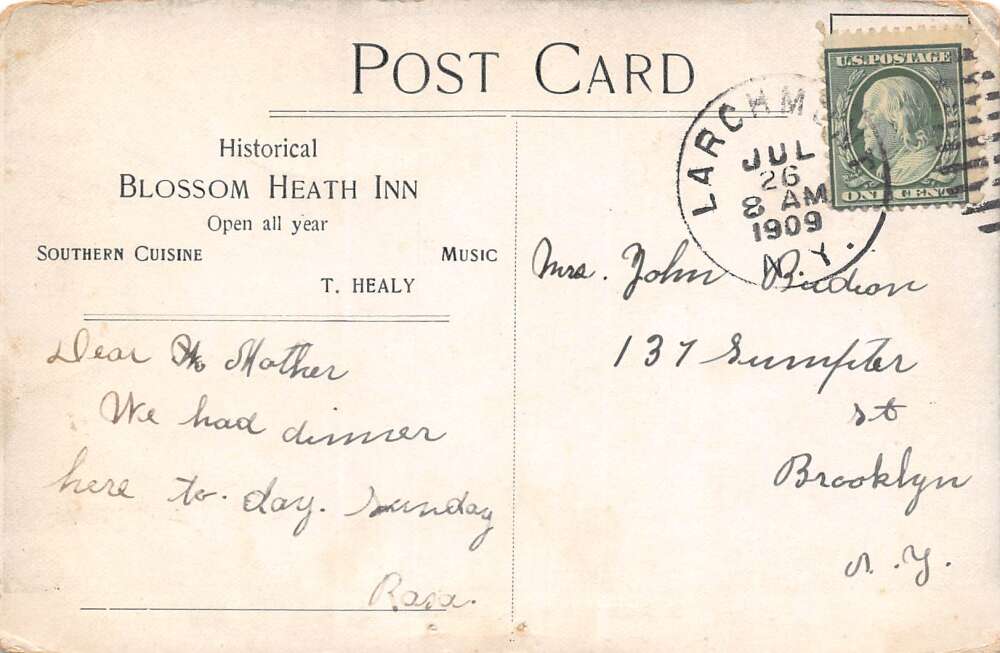 POST CARD
Historical
BLOSSOM HEATH INN
Open all year
SOUTHERN CUISINE MUSIC
T. HEALY
Dear Mother
We had dinner
here to-day. Sunday
Rosa.
U.S. POSTAGE
ONE CENT
LARCHM
N.Y.
JUL
26
8 AM
1909
Mrs. John
137 Sumpter
st
Brooklyn
N.Y.